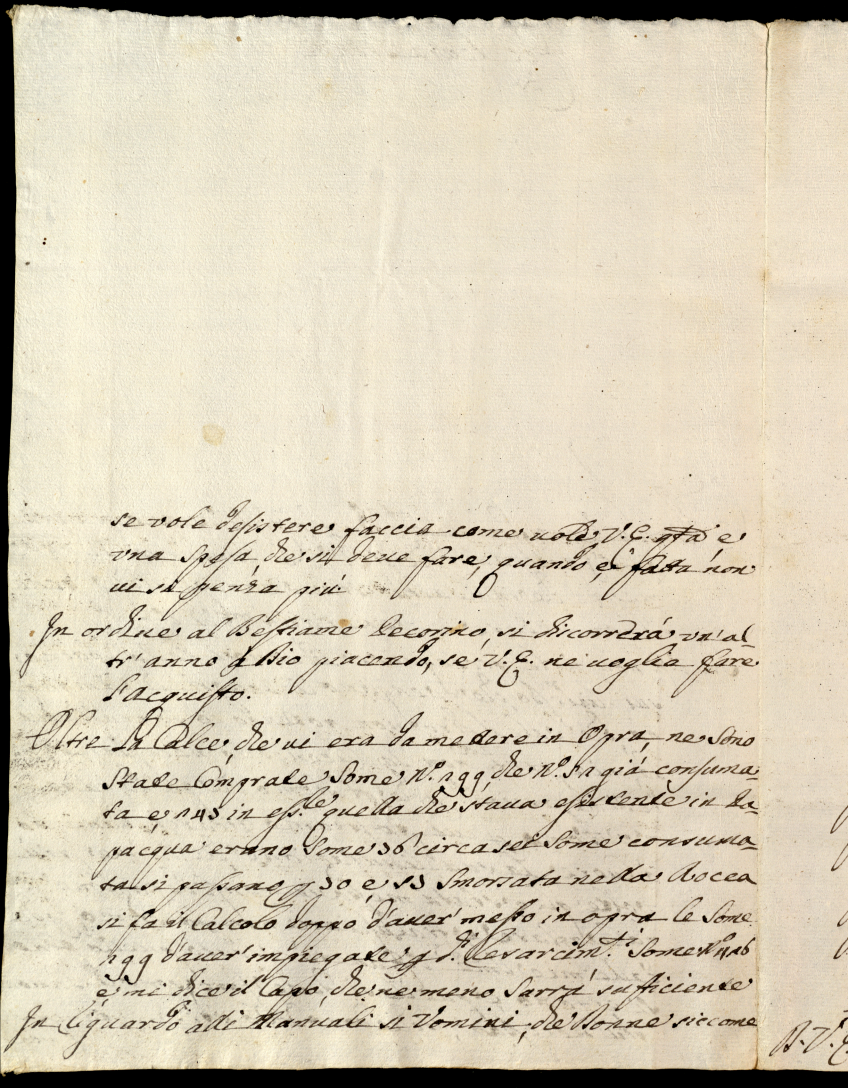 se vole desistere faccia come vole V. E. q.ta è
vna spesa, che si deue fare, quando è fatta non
ui si penza più
In ordine al Bestiame Pecorino, si dicorrerà vn' al=
tr' anno a Dio piacendo, se V. E. ne uoglia fare
l'acquisto.
Oltre La Calce, che ui era da mettere in Opra, ne sono
state Comprate some N.º 199, che N.º 51 già consuma=
ta e 145 in ess.e quella che staua esistente in La=
pacqua erano some 36 circa sei some consuma=
ta si passano p 30 e 53 smorzata nella Rocca
si fa il Calcolo doppo d'auer' messo in opra le some
199 d'auer' impiegate p d.i Resarcim.ti some N.º
e mi dice il Capo, che ne meno sarrà suficiente
In riguardo alli Manuali si Vomini, che Donne siccome